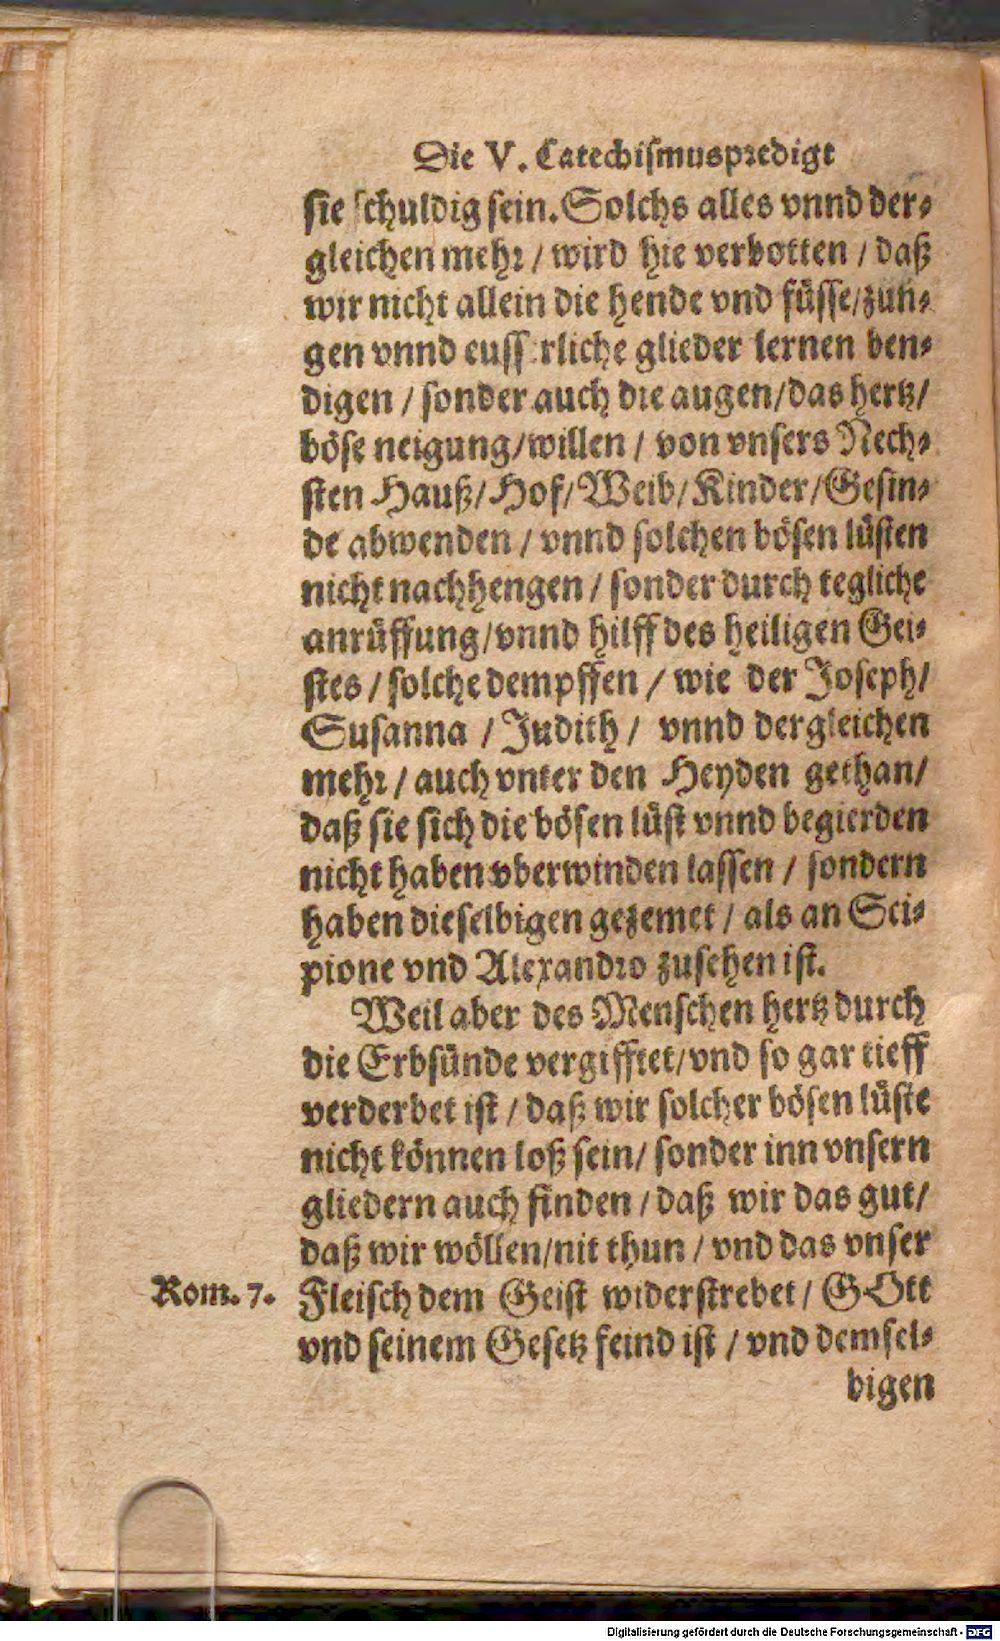 Die V. Catechismuspredigt
sie schuldig sein. Solchs alles vnnd der-
gleichen mehr / wird hie verbotten / daß
wir nicht allein die hende vnd füsse/zun-
gen vnnd eusserliche glieder lernen ben-
digen / sonder auch die augen/das hertz/
böse neigung/willen / von vnsers Nech-
sten Hauß/Hof/Weib/Kinder/Gesin-
de abwenden / vnnd solchen bösen lüsten
nicht nachhengen / sonder durch tegliche
anrüffung/vnnd hilff des heiligen Gei-
stes / solche dempffen / wie der Joseph/
Susanna / Judith / vnnd dergleichen
mehr / auch vnter den Heyden gethan/
daß sie sich die bösen lüst vnnd begierden
nicht haben vberwinden lassen / sondern
haben dieselbigen gezemet / als an Sci-
pione vnd Alexandro zusehen ist.
Weil aber des Menschen hertz durch
die Erbsünde vergifftet/vnd so gar tieff
verderbet ist / daß wir solcher bösen lüste
nicht können loß sein/ sonder inn vnsern
gliedern auch finden / daß wir das gut/
daß wir wöllen/nit thun / vnd das vnser
Rom. 7. Fleisch dem Geist widerstrebet / GOtt
vnd seinem Gesetz feind ist / vnd demsel-
bigen
Digitalisierung gefördert durch die Deutsche Forschungsgemeinschaft - DFG